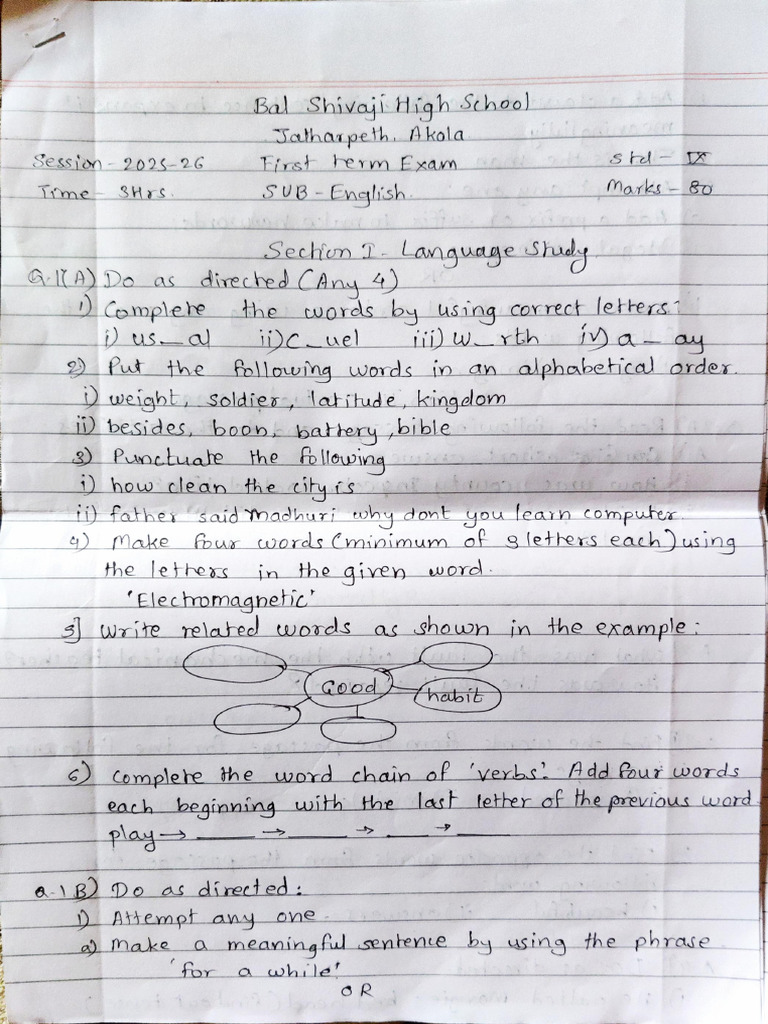 Bal Shivaji High School
Jatharpeth, Akola
Session - 2025-26 First term Exam Std - IX
Time - 3Hrs. SUB - English. Marks - 80
Section I - Language Study
Q.1(A) Do as directed (Any 4)
1) Complete the words by using correct letters:
i) us_al ii) c_uel iii) w_rth iv) a_ay
2) Put the following words in an alphabetical order.
i) weight, soldier, latitude, kingdom
ii) besides, boon, battery, bible
3) Punctuate the following
i) how clean the city is
ii) father said madhuri why dont you learn computer.
4) Make four words (minimum of 3 letters each) using
the letters in the given word.
'Electromagnetic'
5] Write related words as shown in the example:
Good
habit
6) Complete the word chain of 'verbs'. Add four words
each beginning with the last letter of the previous word
play → ____ → ____ → ____ → ____
Q.1 B) Do as directed:
1) Attempt any one
a) Make a meaningful sentence by using the phrase
'for a while'
OR